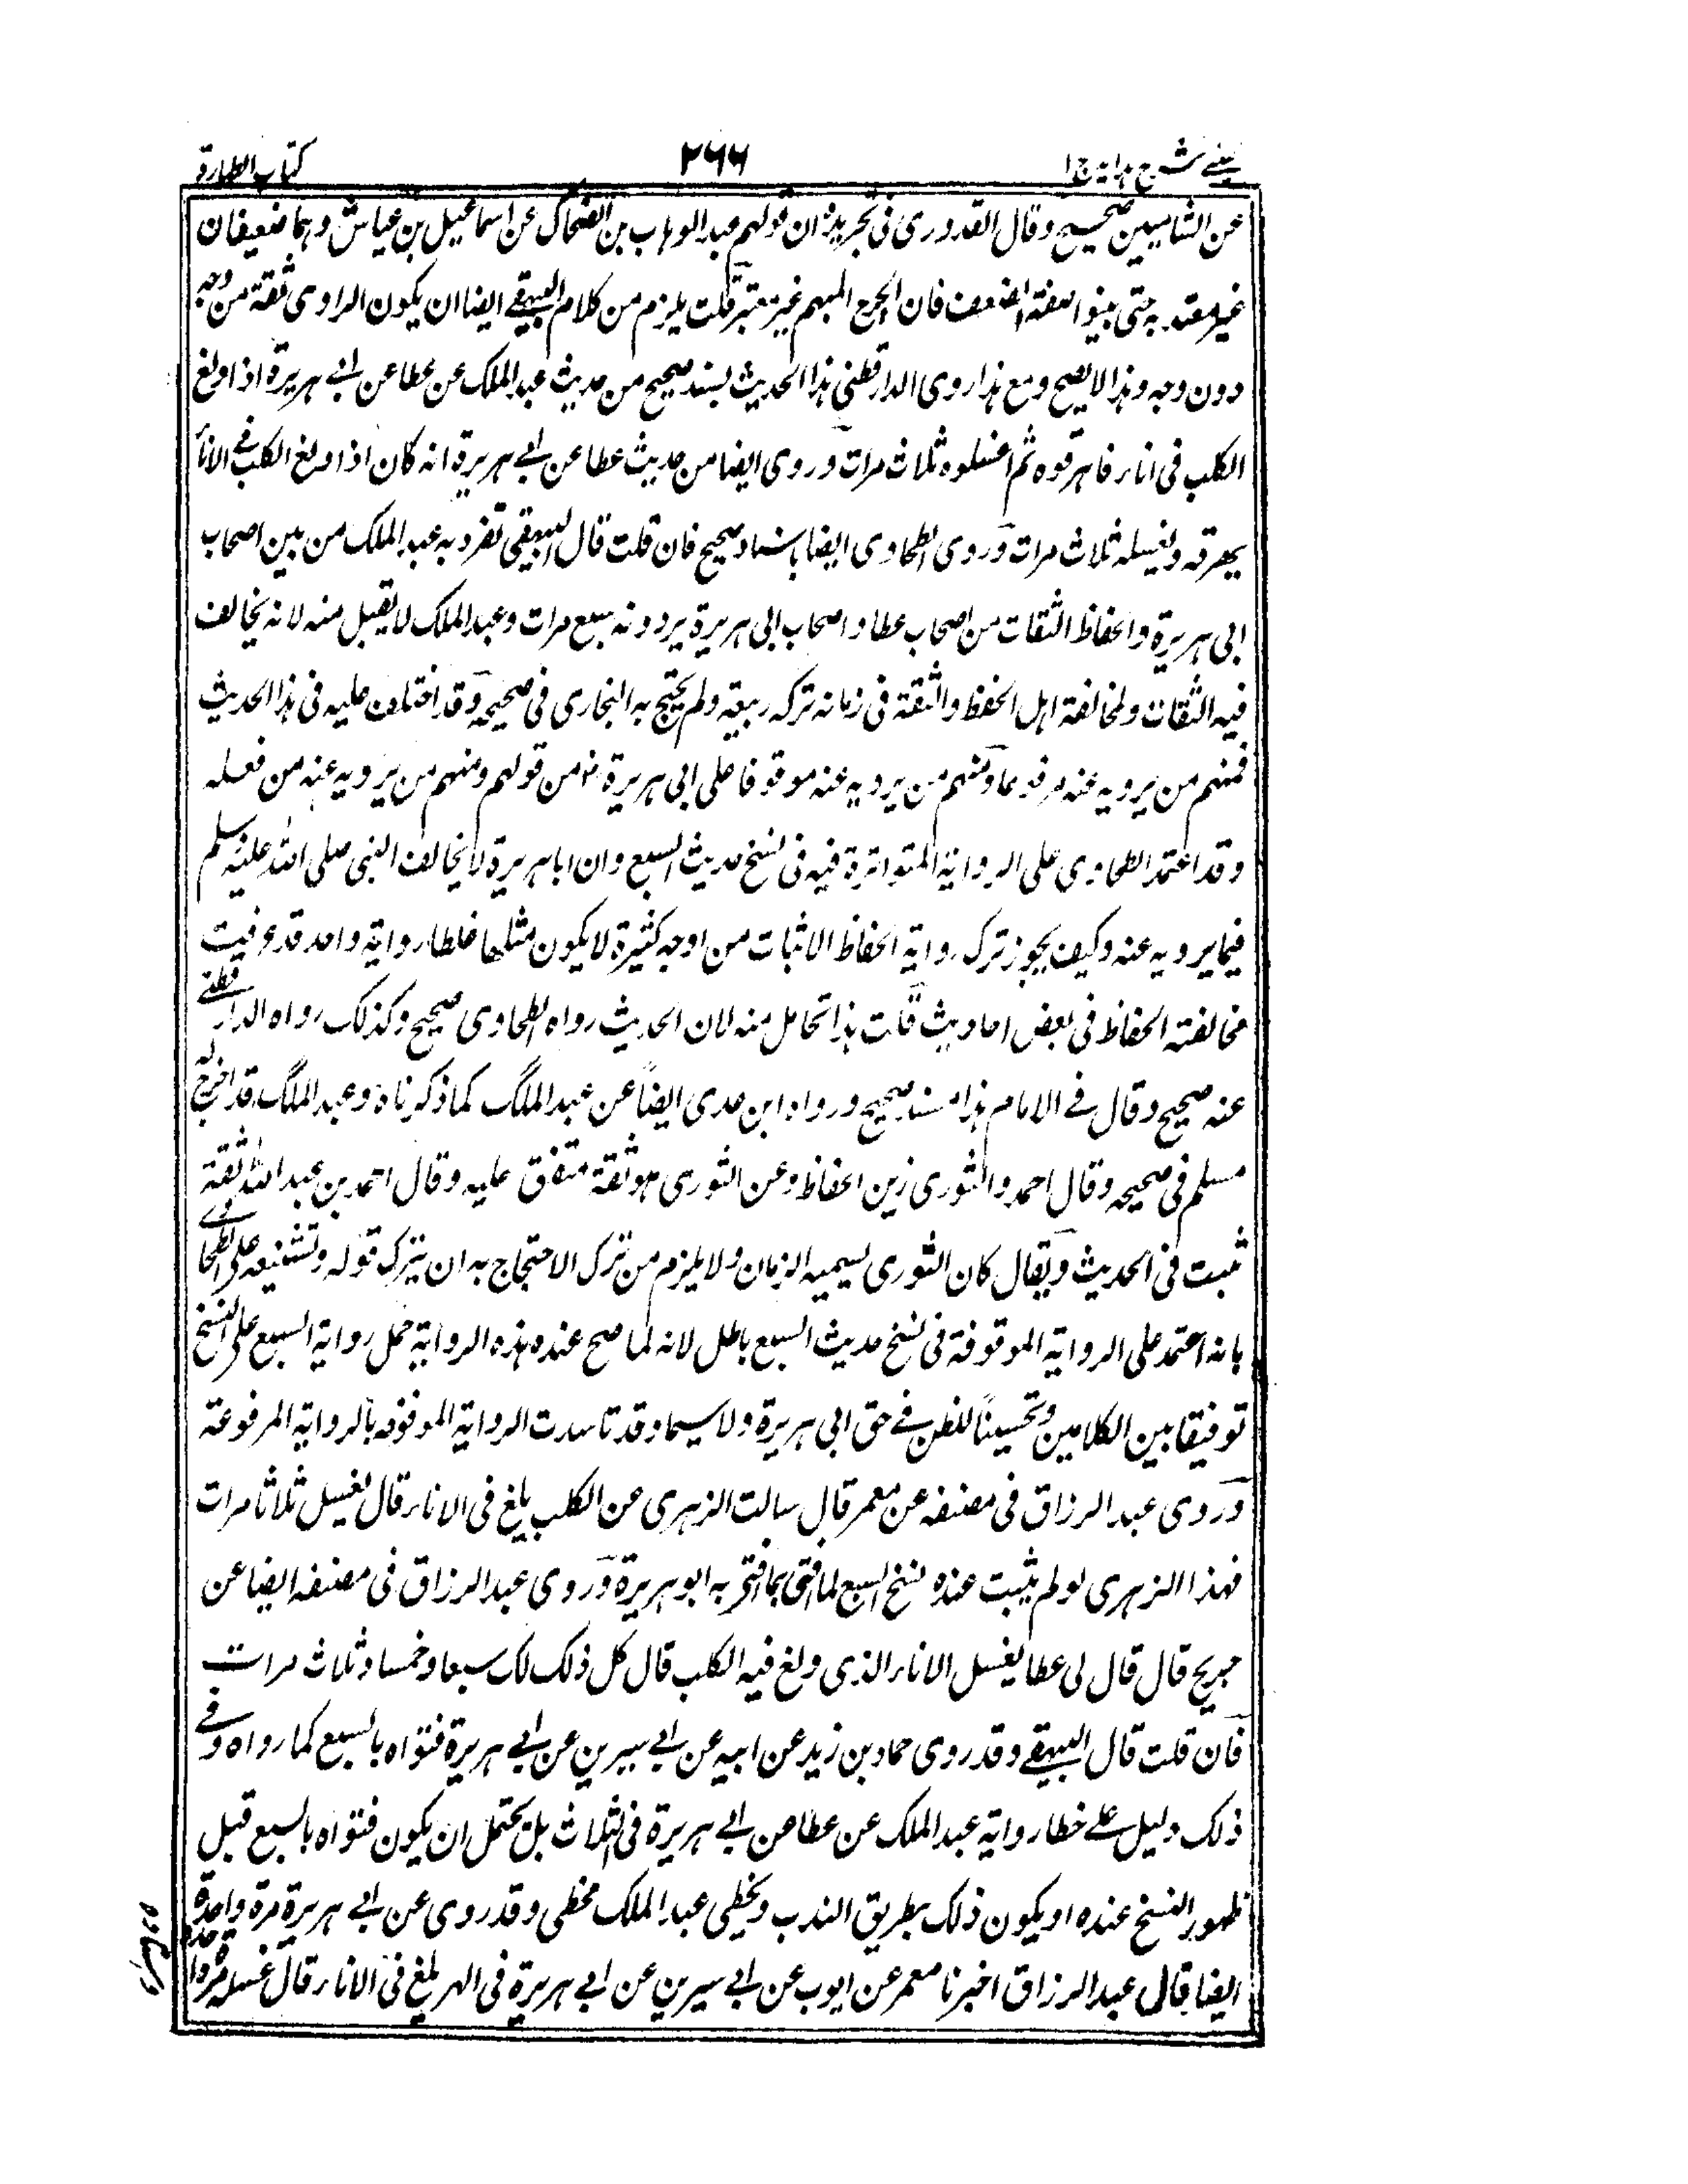 عینی شرح ہدایہ ج ا
۲۶۶
کتاب الطهارة
عن الشاميين صحيح وقال القدوري في تجريده ان قولهم عبد الوهاب بن الضحاك عن اسماعيل بن عياش وهما ضعيفان
غير معتد به حتى يبينوا صفة الضعف فان الجرح المبهم غير معتبر قلت يلزم من كلام البيهقي ايضا ان يكون الراوي ثقة من وجه
دون وجه وهذا لا يصح ومع هذا روى الدارقطني هذا الحديث بسند صحيح من حديث عبد الملك عن عطا عن ابي هريرة اذا ولغ
الكلب في اناء فاهرقوه ثم اغسلوه ثلاث مرات وروى ايضا من حديث عطا عن ابي هريرة انه كان اذا ولغ الكلب في الاناء
يهرقه ويغسله ثلاث مرات وروى الطحاوي ايضا باسناد صحيح فان قلت قال البيهقي تفرد به عبد الملك من بين اصحاب
ابي هريرة والحفاظ الثقات من اصحاب عطا واصحاب ابي هريرة يردونه سبع مرات وعبد الملك لا يقبل منه لانه يخالف
فيه الثقات ولمخالفة اهل الحفظ والثقة في زمانه تركه ربيعة ولم يحتج به البخاري في صحيحه وقد اختلف عليه في هذا الحديث
فمنهم من يرويه عنه مرفوعا ومنهم من يرويه عنه موقوفا على ابي هريرة من قولهم ومنهم من يرويه عنه من فعله
وقد اعتمد الطحاوي على الرواية المتواترة فيه في نسخ حديث السبع وان ابا هريرة لا يخالف النبي صلى الله عليه وسلم
فيما يرويه عنه وكيف يجوز ترك رواية الحفاظ الاثبات من اوجه كثيرة لا يكون مثلها غلطا رواية واحد قد عرفت
مخالفته الحفاظ في بعض احاديث قلت هذا تحامل منه لان الحديث رواه الطحاوي صحيح وكذلك رواه الدارقطني
عنه صحيح وقال في الامام هذا سند صحيح ورواه ابن عدي ايضاً عن عبد الملك كما ذكرناه وعبد الملك قد اخرج له
مسلم في صحيحه وقال احمد والثوري زين الحفاظ وعن الثوري هو ثقة متفق عليه وقال احمد بن عبد الله ثقة
ثبت في الحديث ويقال كان الثوري يسميه الزمان ولا يلزم من ترك الاحتجاج به ان يترك قوله وتشنيعه على الطحاوي
بانه اعتمد على الرواية الموقوفة في نسخ حديث السبع باطل لانه لما صح عنده هذه الرواية حمل رواية السبع على النسخ
توفيقا بين الكلامين وتحسيناً للظن في حق ابي هريرة ولا سيما وقد تاسدت الرواية الموقوفة بالرواية المرفوعة
وروى عبد الرزاق في مصنفه عن معمر قال سالت الزهري عن الكلب يلغ في الاناء قال يغسل ثلاثا مرات
فهذا الزهري لو لم يثبت عنده نسخ السبع لما افتى بما افتى به ابو هريرة وروى عبد الرزاق في مصنفه ايضا عن
جريح قال قال لي عطا يغسل الاناء الذي ولغ فيه الكلب قال كل ذلك لك سبعا وخمسا وثلاث مرات
فان قلت قال البيهقي وقد روى حماد بن زيد عن ابيه عن ابي سيرين عن ابي هريرة فتواه بالسبع كما رواه وفي
ذلك دليل على خطاء رواية عبد الملك عن عطا عن ابي هريرة في الثلاث بل يحتمل ان يكون فتواه بالسبع قبل
ظهور النسخ عنده او يكون ذلك بطريق الندب ويخطي عبد الملك مخطي وقد روى عن ابي هريرة مرة واحدة
ايضا قال عبد الرزاق اخبرنا معمر عن ايوب عن ابي سيرين عن ابي هريرة في الهر يلغ في الاناء قال غسله مرة واحدة